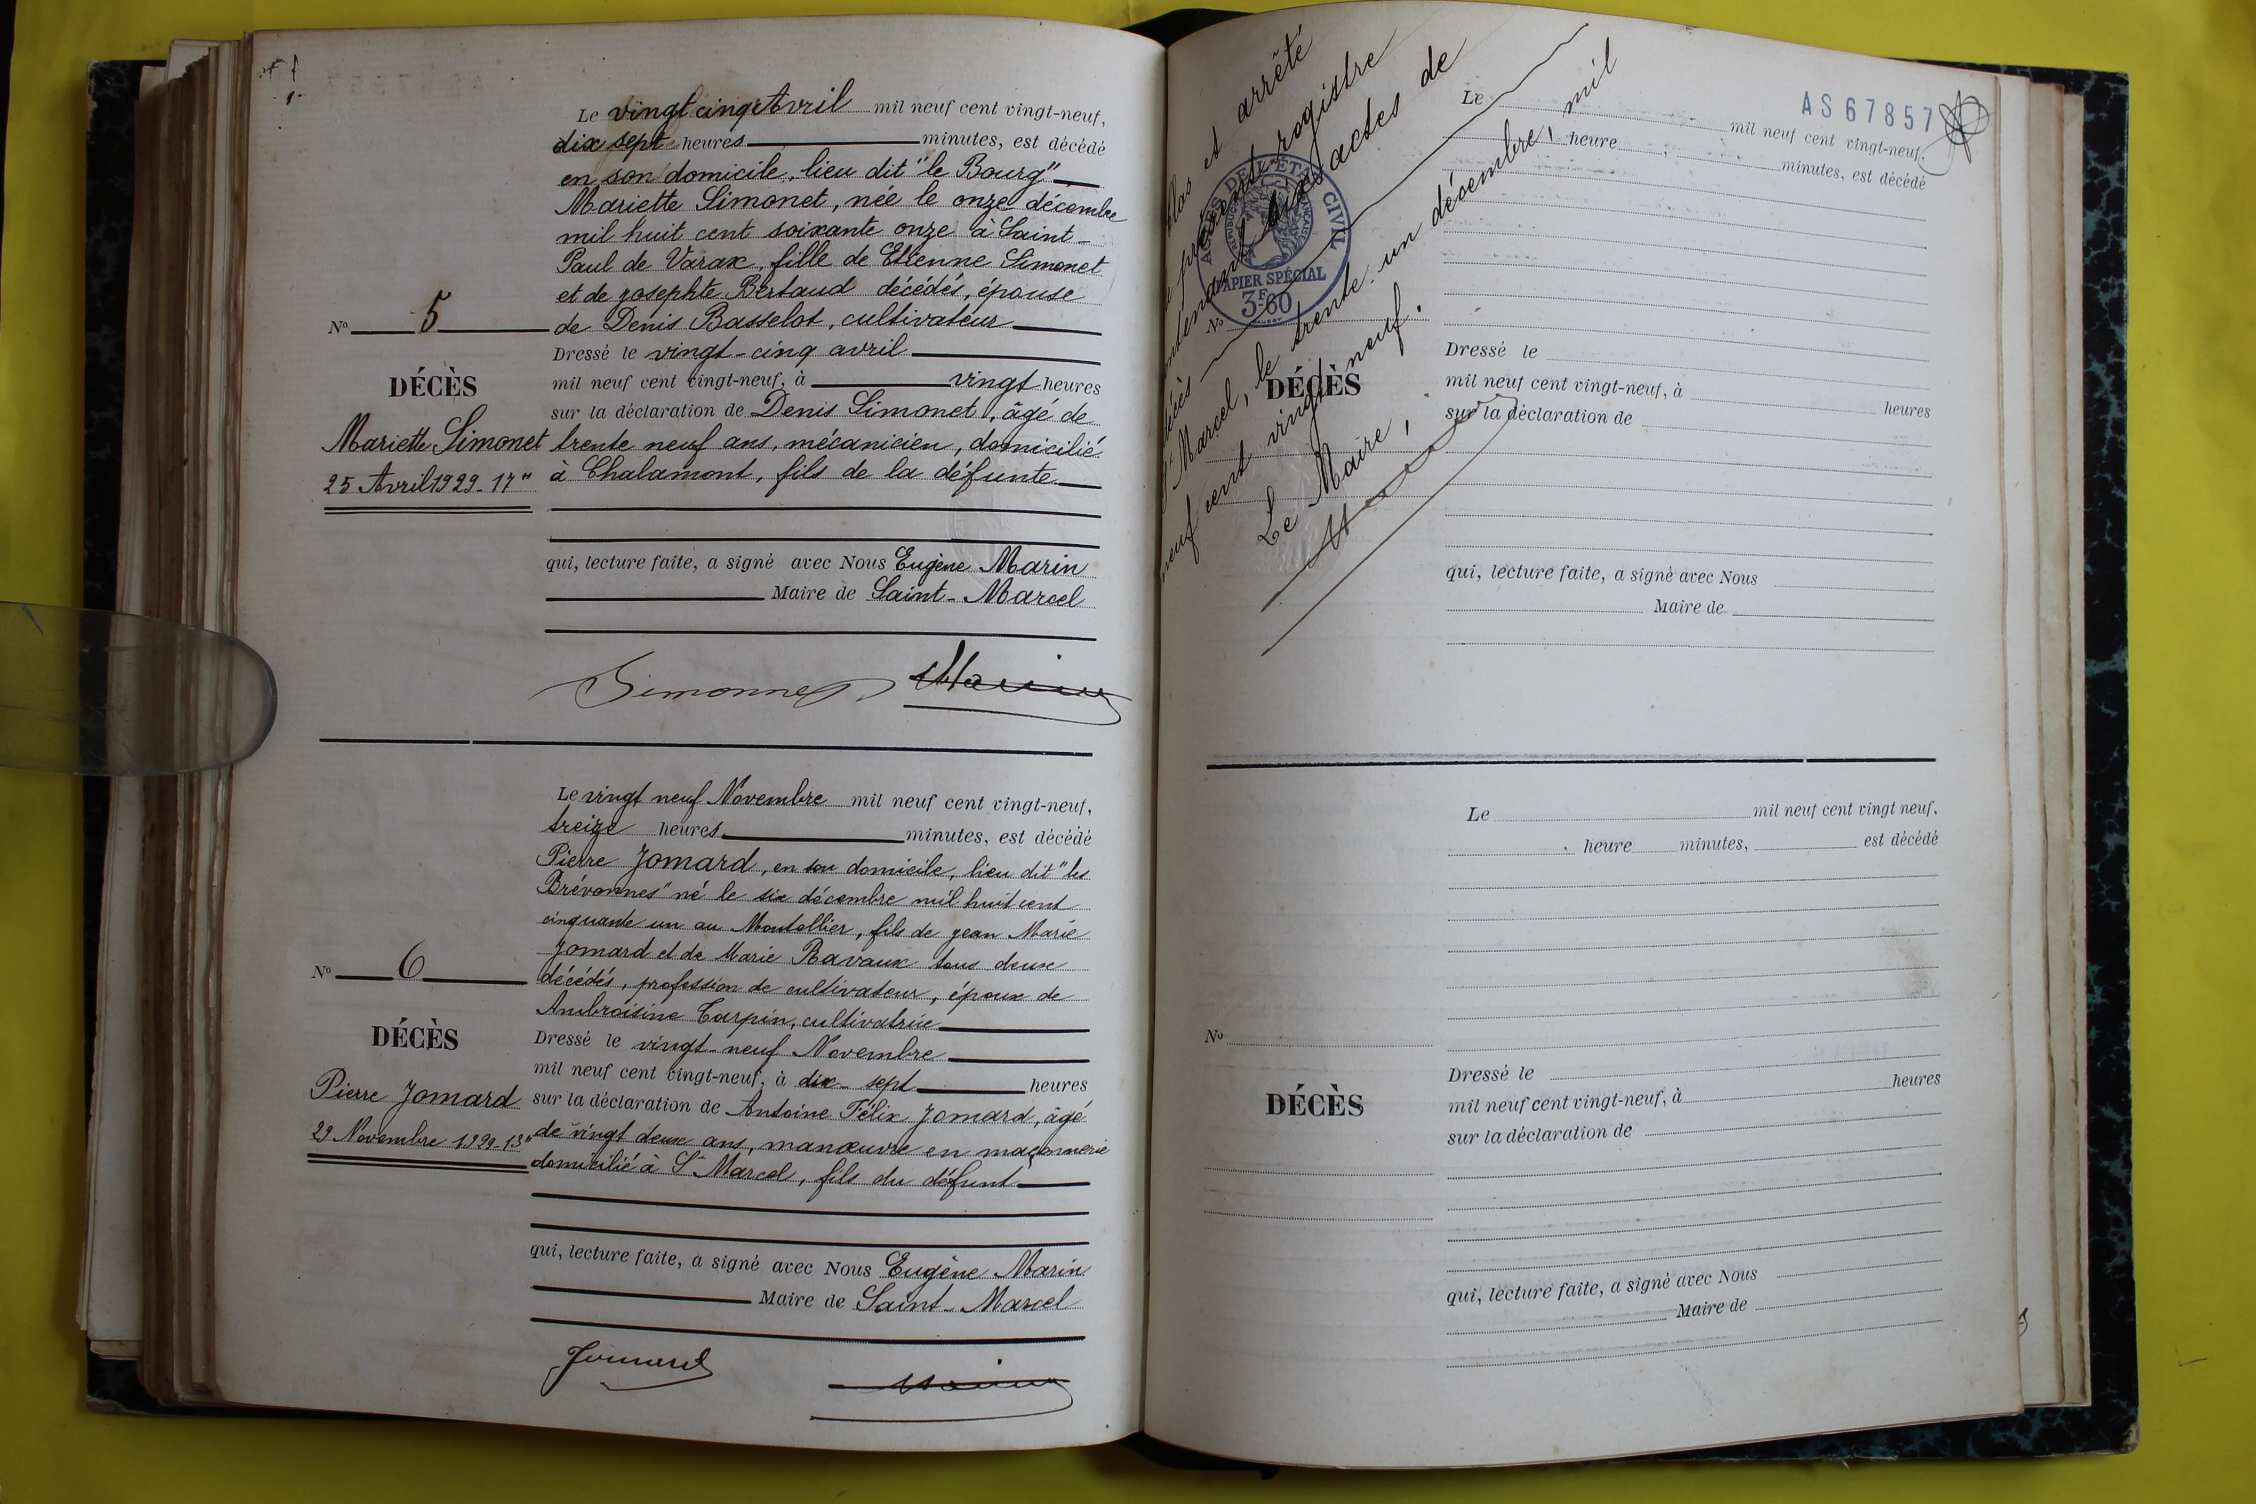 Le vingt cinq Avril mil neuf cent vingt-neuf,
dix sept heures minutes, est décédé
en son domicile, lieu dit "le Bourg"
Mariette Simonet, née le onze décembre
mil huit cent soixante onze à Saint-
Paul de Varax, fille de Etienne Simonet
et de Josephte Bertaud décédés, épouse
de Denis Basselot, cultivateur
No 5
Dressé le vingt-cinq avril
mil neuf cent vingt-neuf, à vingt heures
DÉCÈS
sur la déclaration de Denis Simonet, âgé de
Mariette Simonet
trente neuf ans, mécanicien, domicilié
25 Avril 1929 - 17"
à Chalamont, fils de la défunte
qui, lecture faite, a signé avec Nous Eugène Marin
Maire de Saint-Marcel
Simonnet Marin
Le vingt neuf Novembre mil neuf cent vingt-neuf,
treize heures minutes, est décédé
Pierre Jomard, en son domicile, lieu dit "les
Brévonnes" né le six décembre mil huit cent
cinquante un au Montellier, fils de Jean Marie
Jomard et de Marie Ravaux tous deux
No 6
décédés, profession de cultivateur, époux de
Ambroisine Carpin, cultivatrice
DÉCÈS
Dressé le vingt-neuf Novembre
mil neuf cent vingt-neuf, à dix-sept heures
Pierre Jomard
sur la déclaration de Antoine Félix Jomard, âgé
29 Novembre 1929-13"
de vingt deux ans, manœuvre en maçonnerie
domicilié à St Marcel, fils du défunt
qui, lecture faite, a signé avec Nous Eugène Marin
Maire de Saint-Marcel
Jomard Marin
clos et arrêté
présent registre
contenant six actes de
décès
St Marcel, le trente-un décembre, mil
neuf cent vingt neuf.
Le Maire,
Marin
ACTES DE L'ÉTAT CIVIL
RÉPUBLIQUE FRANÇAISE
PAPIER SPÉCIAL
3F60
AS67857
Le mil neuf cent vingt-neuf,
heure, minutes, est décédé
No
Dressé le
DÉCÈS
mil neuf cent vingt-neuf, à heures
sur la déclaration de
qui, lecture faite, a signé avec Nous
Maire de
Le mil neuf cent vingt neuf,
heure minutes, est décédé
No
Dressé le
DÉCÈS
mil neuf cent vingt-neuf, à heures
sur la déclaration de
qui, lecture faite, a signé avec Nous
Maire de